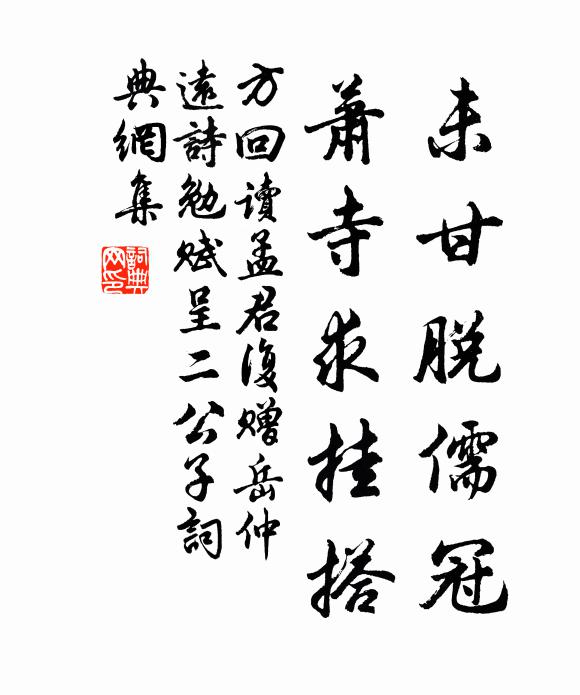 未甘脱儒冠
蕭寺求挂搭
方回讀孟君復贈岳仲
遠詩勉賦呈二公子詞
典網集
詞典网印